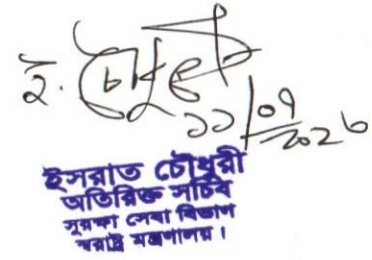 ই. চৌধুরী
১১/০৭/২০২৩
ইসরাত চৌধুরী
অতিরিক্ত সচিব
সুরক্ষা সেবা বিভাগ
স্বরাষ্ট্র মন্ত্রণালয়।